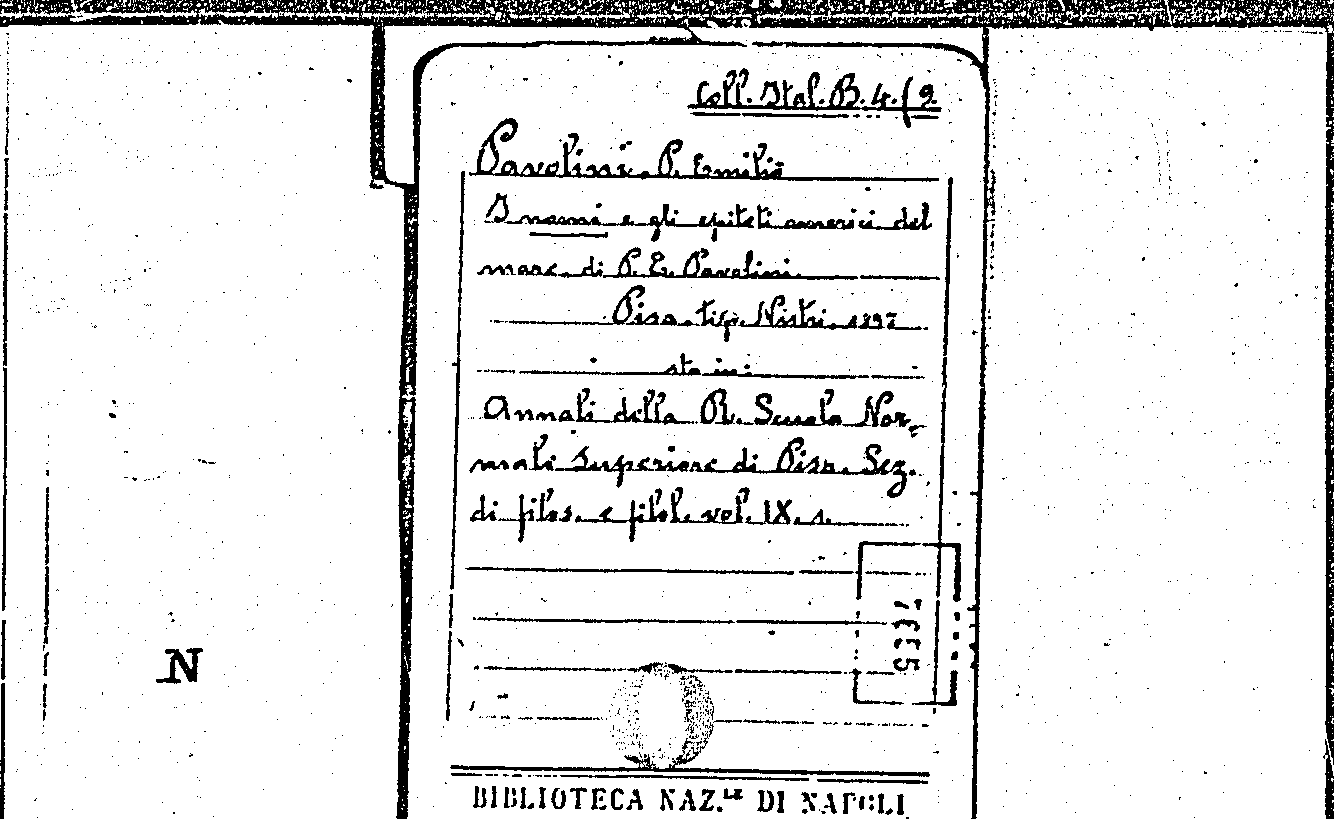 Coll. Ital. B. 4. (9.
Pavolini. P. Emilio
I nomi e gli epiteti omerici del
mare. di P. E. Pavolini.
Pisa. tip. Nistri. 1897
sta in:
Annali della R. Scuola Nor-
male Superiore di Pisa. Sez.
di filos. e filol. vol. IX. s.
5337
N
BIBLIOTECA NAZ.LE DI NAPOLI